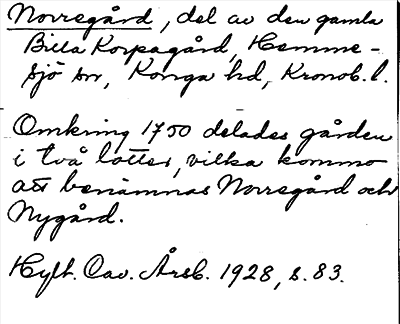 Norregård, del av den gamla
Billa Korpagård, Hemme-
sjö sn, Konga hd, Kronob. l.
Omkring 1750 delades gården
i två lotter, vilka kommo
att benämnas Norregård och
Nygård.
Hylt. Cav. Årsb. 1928, s. 83.